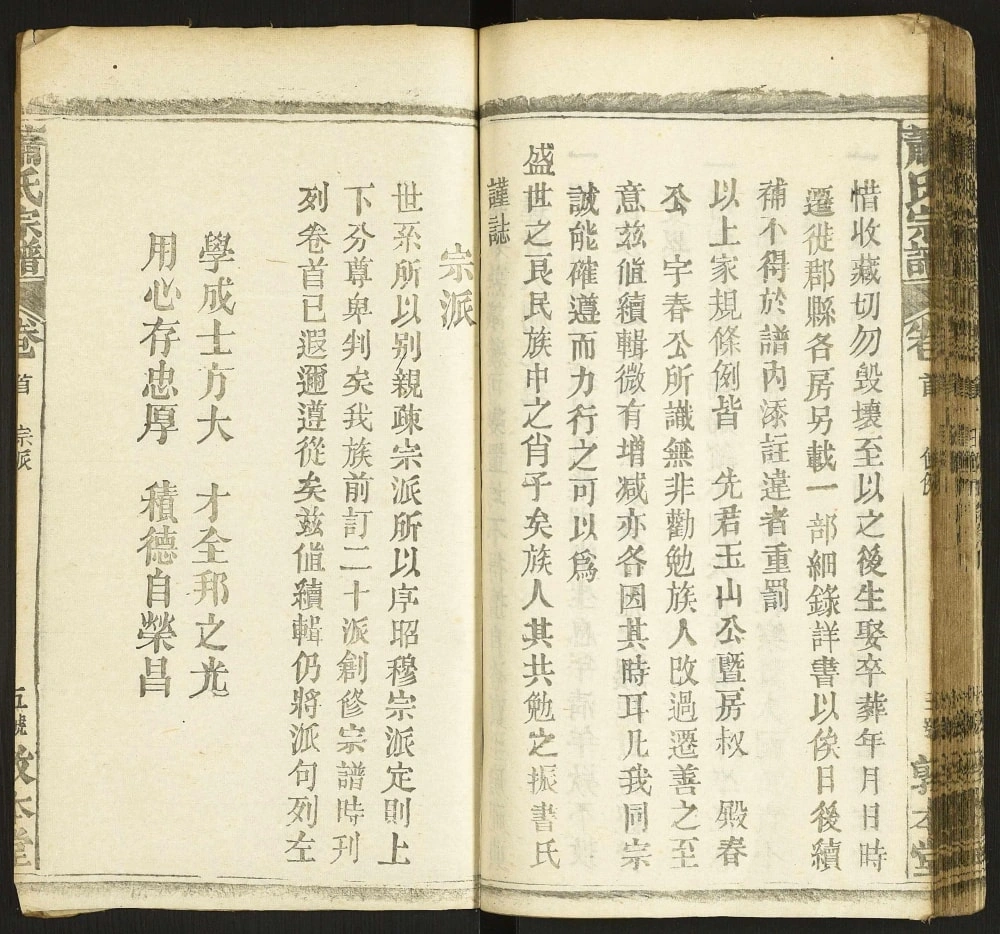 蕭氏宗譜 卷 首 條例 三號 敦本堂
惜收藏切勿毀壞至以之後生娶卒葬年月日時
遷徙郡縣各房另載一部細錄詳書以俟日後續
補不得於譜內添註違者重罰
以上家規條例皆 先君玉山公暨房叔 殿春
公宇春公所識無非勸勉族人改過遷善之至
意茲值續輯微有增減亦各因其時耳凡我同宗
誠能確遵而力行之可以爲
盛世之良民族中之肖子矣族人其共勉之振書氏
謹誌
宗派
世系所以别親疎宗派所以序昭穆宗派定則上
下分尊卑判矣我族前訂二十派創修宗譜時刊
列卷首已遐邇遵從矣茲值續輯仍將派句列左
學成士方大 才全邦之光
用心存忠厚 積德自榮昌
蕭氏宗譜 卷 首 宗派 五號 敦本堂